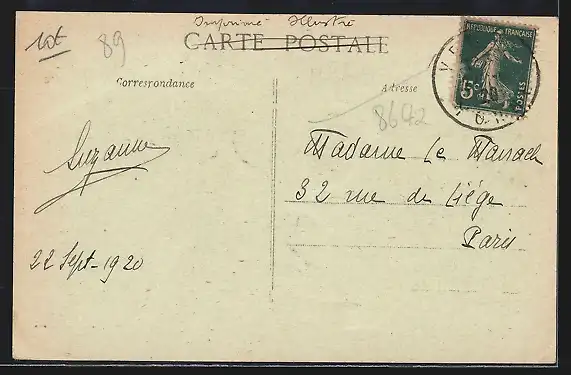 Imprimé Illustré
CARTE POSTALE
10€
89
Correspondance
Adresse
8692
REPUBLIQUE FRANÇAISE
5c
POSTES
Suzanne
22 Sept - 1920
Madame Le Manach
32 rue de Liége
Paris